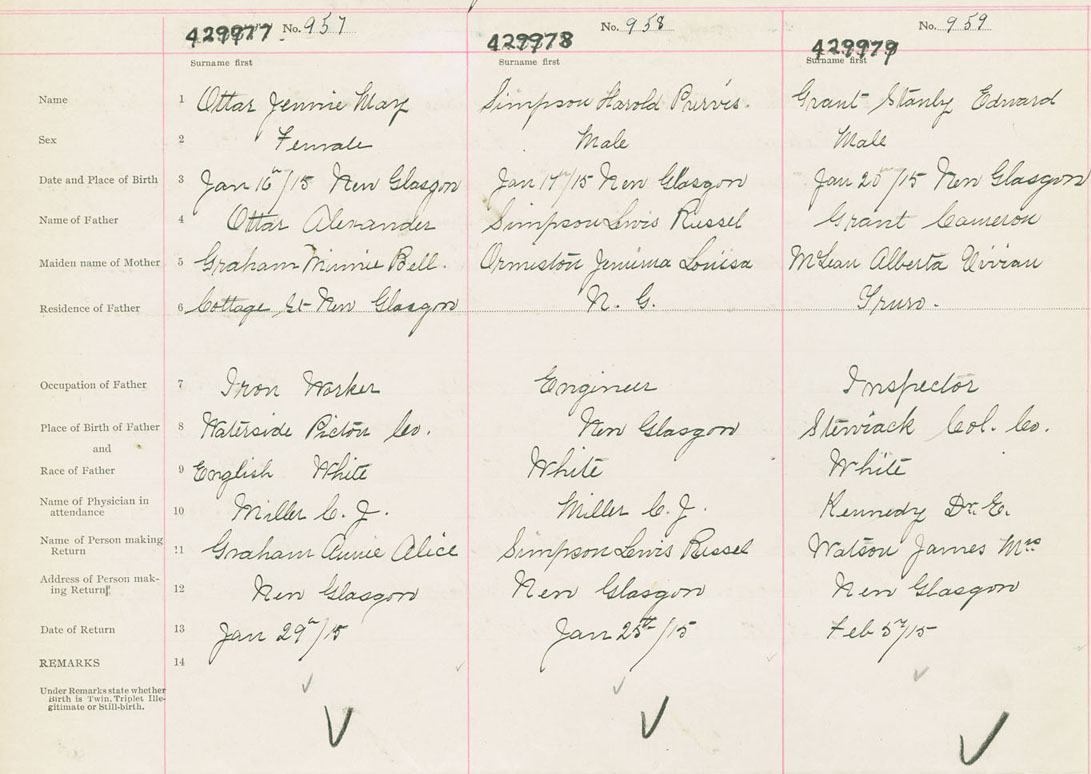 No. 957 No. 958 No. 959
429977 429978 429979
Surname first Surname first Surname first
Name 1 Ottar Jennie May Simpson Harold Purvis. Grant Stanly Edward
Sex 2 Female Male Male
Date and Place of Birth 3 Jan 16th/15 New Glasgow Jan 17th/15 New Glasgow Jan 20th/15 New Glasgow
Name of Father 4 Ottar Alexander Simpson Lewis Russel Grant Cameron
Maiden name of Mother 5 Graham Minnie Bell. Ormiston Jemima Louisa McLean Alberta Vivian
Residence of Father 6 Cottage St- New Glasgow N. G. Truro.
Occupation of Father 7 Iron Worker Engineer Inspector
Place of Birth of Father 8 Waterside Pictou Co. New Glasgow Stewiack Col. Co.
and
Race of Father 9 English White White White
Name of Physician in
attendance 10 Miller C. J. Miller C. J. Kennedy Dr. E.
Name of Person making
Return 11 Graham Annie Alice Simpson Lewis Russel Watson James Mrs
Address of Person mak-
ing Return 12 New Glasgow New Glasgow New Glasgow
Date of Return 13 Jan 29th/15 Jan 25th/15 Feb 5th/15
REMARKS 14
Under Remarks state whether
Birth is Twin, Triplet Ille-
gitimate or Still-birth.